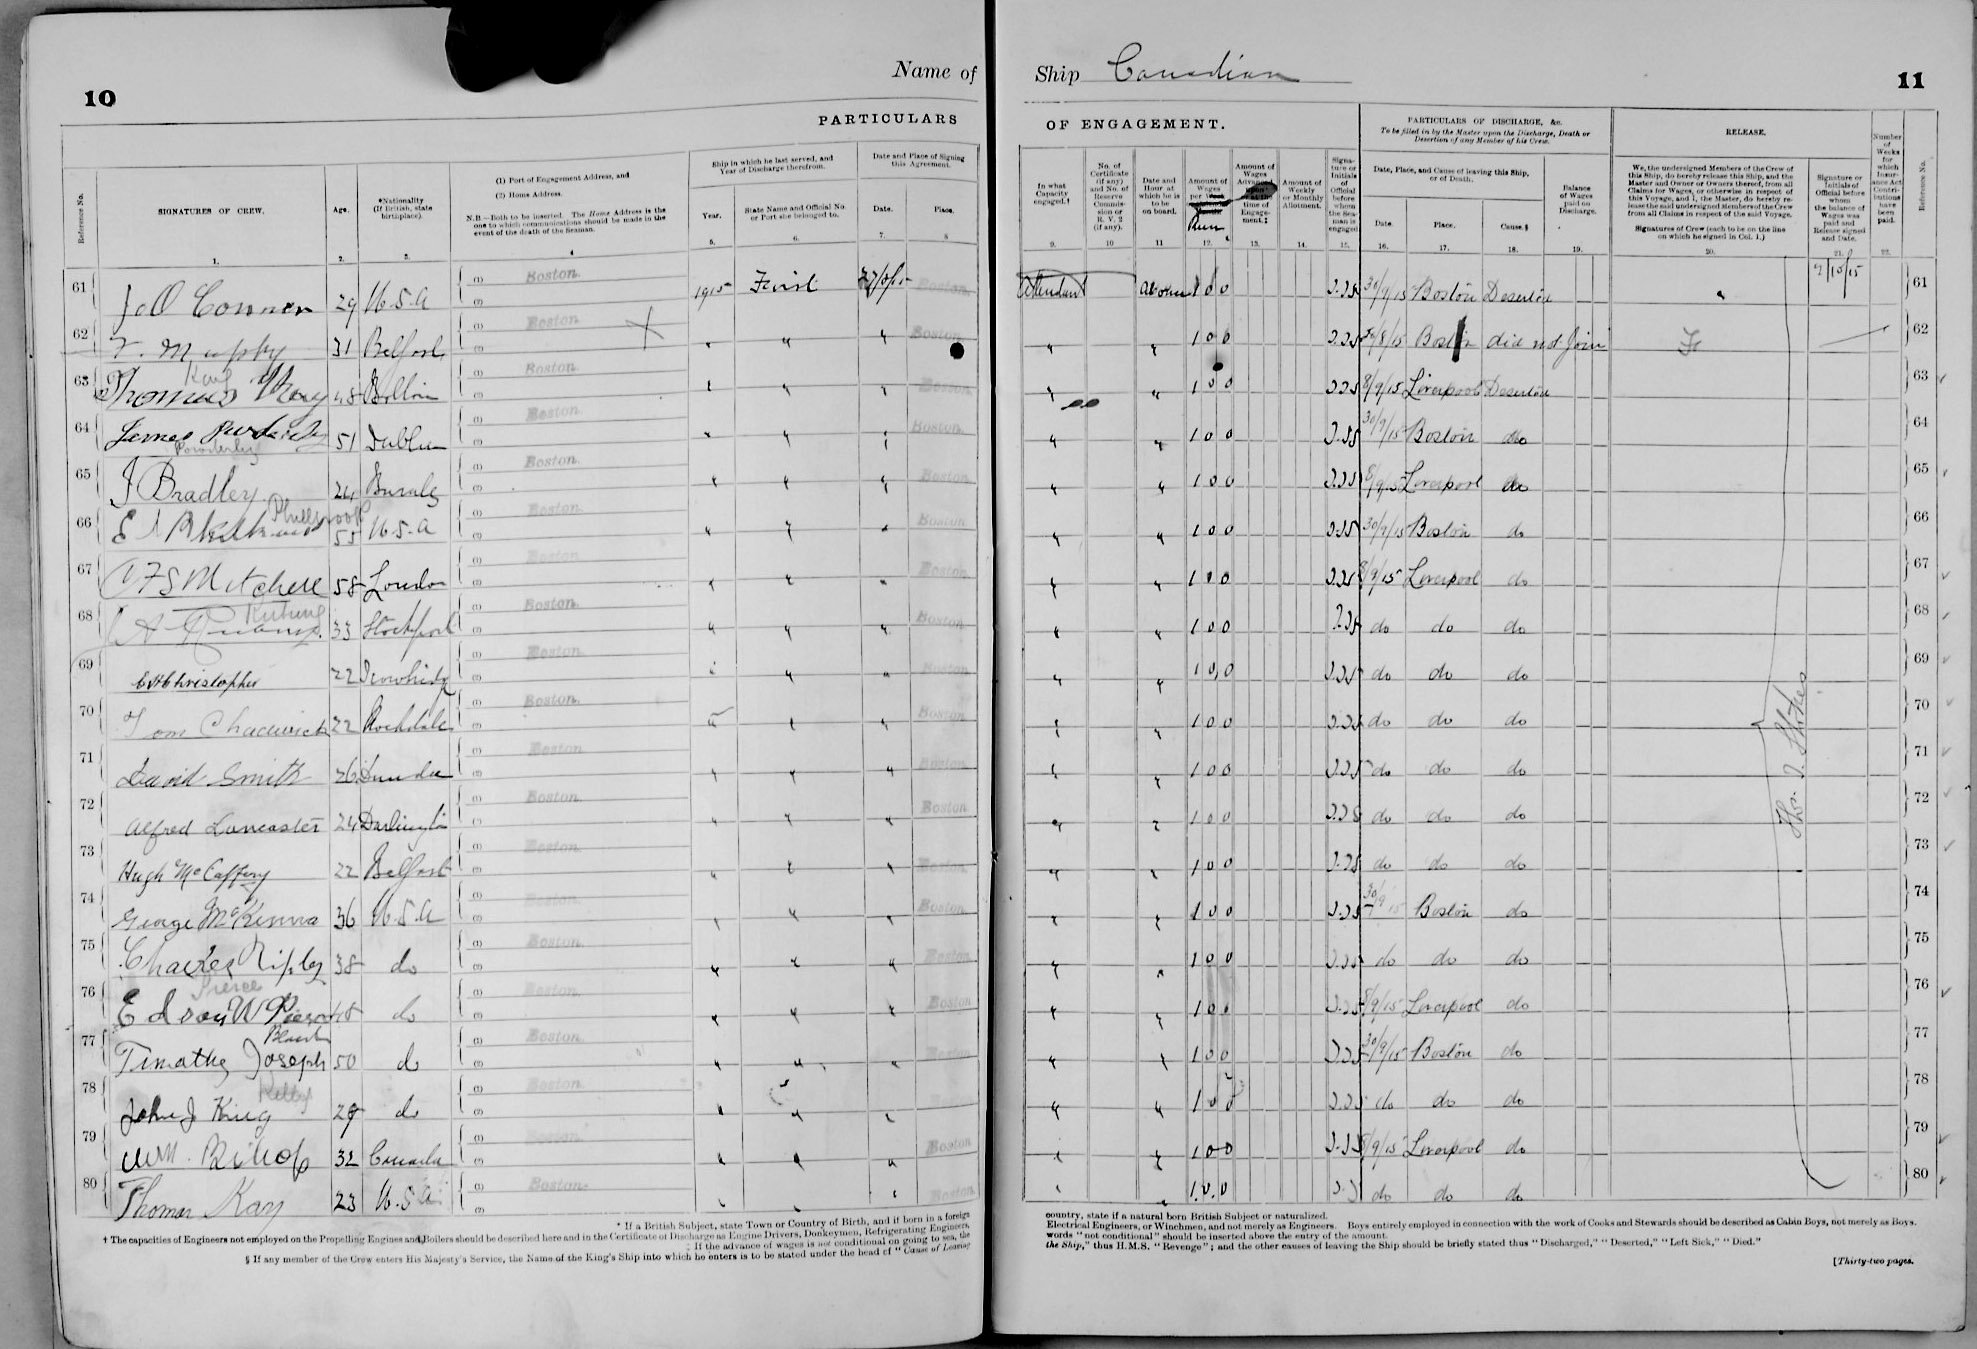 10
Name of
PARTICULARS
Reference No.
SIGNATURES OF CREW.
Age.
*Nationality
(If British, state
birthplace).
(1) Port of Engagement Address, and
(2) Home Address.
N.B.—Both to be inserted. The Home Address is the
one to which communications should be made in the
event of the death of the Seaman.
Ship in which he last served, and
Year of Discharge therefrom.
Year.
State Name and Official No.
or Port she belonged to.
Date and Place of Signing
this Agreement.
Date.
Place.
1. 2. 3. 4 5. 6. 7. 8
61 J O Connor 29 U.S.A (1) Boston. (2) 1915 First Boston.
62 T. Murphy 31 Belfast (1) Boston (2) " " " Boston
63 Thomas Kay 48 Bolton (1) Boston (2) " " " Boston
64 James Powderley 51 Dublin (1) Boston. (2) " " " Boston.
65 J Bradley 24 Burnley (1) Boston. (2) " " " Boston
66 E Philbrook 55 U.S.A (1) Boston (2) " " " Boston
67 F S Mitchell 58 London (1) Boston (2) " " " Boston
68 A 33 Stockport (1) Boston. (2) " " " Boston
69 Christopher 22 (1) Boston (2) " " " Boston
70 Tom Chadwick 22 Rochdale (1) Boston. (2) " " " Boston
71 David Smith 26 Dundee (1) Boston (2) " " " Boston
72 Alfred Lancaster 24 Darlington (1) Boston (2) " " " Boston
73 Hugh McCaffery 22 Belfast (1) Boston (2) " " " Boston
74 George McKenna 36 U.S.A (1) Boston (2) " " " Boston
75 Charles Ripley 38 do (1) Boston (2) " " " Boston
Pierce
76 Edson W Pierce 48 do (1) Boston (2) " " " Boston
77 Timothy Joseph 50 do (1) Boston (2) " " " Boston
Kelly
78 John J King do (1) Boston (2) " " "
79 Wm. Bishop 32 Canada (1) Boston (2) " " " Boston
80 Thomas Kay 23 U.S.A (1) Boston (2) " " " Boston
* If a British Subject, state Town or Country of Birth, and if born in a foreign
† The capacities of Engineers not employed on the Propelling Engines and Boilers should be described here and in the Certificate of Discharge as Engine Drivers, Donkeymen, Refrigerating Engineers,
‡ If the advance of wages is not conditional on going to sea, the
§ If any member of the Crew enters His Majesty's Service, the Name of the King's Ship into which he enters is to be stated under the head of "Cause of Leaving
Ship Canadian
11
OF ENGAGEMENT.
In what
Capacity
engaged.†
No. of
Certificate
(if any)
and No. of
Reserve
Commis-
sion or
R. V. 2
(if any).
Date and
Hour at
which he is
to be
on board.
Amount of
Wages
per
Amount of
Wages
Advanced
time of
Engage-
ment.‡
Amount of
Weekly
or Monthly
Allotment.
Signa-
ture or
Initials
of
Official
before
whom
the Sea-
man is
engaged
PARTICULARS OF DISCHARGE, &c.
To be filled in by the Master upon the Discharge, Death or
Desertion of any Member of his Crew.
Date, Place, and Cause of leaving this Ship,
or of Death.
Date.
Place.
Cause.§
Balance
of Wages
paid on
Discharge.
RELEASE.
We, the undersigned Members of the Crew of
this Ship, do hereby release this Ship, and the
Master and Owner or Owners thereof, from all
Claims for Wages, or otherwise in respect of
this Voyage, and I, the Master, do hereby re-
lease the said undersigned Members of the Crew
from all Claims in respect of the said Voyage.
Signatures of Crew (each to be on the line
on which he signed in Col. 1.)
Signature or
Initials of
Official before
whom
the balance of
Wages was
paid and
Release signed
and Date.
Number
of
Weeks
for
which
Insur-
ance Act
Contri-
butions
have
been
paid.
Reference No.
9. 10 11 12. 13. 14. 15. 16. 17. 18. 19. 20. 21. 22.
Attendant At once 1 0 0 30/9/15 Boston Deserted 61
" " 1 0 0 Boston did not Join 62
" " 1 0 0 8/9/15 Liverpool Deserted 63
" " 1 0 0 30/9/15 Boston do 64
" " 1 0 0 8/9/15 Liverpool do 65
" " 1 0 0 30/9/15 Boston do 66
" " 1 0 0 8/9/15 Liverpool do 67
" " 1 0 0 do do do 68
" " 1 0 0 do do do 69
" " 1 0 0 do do do 70
" " 1 0 0 do do do 71
" " 1 0 0 do do do 72
" " 1 0 0 do do do 73
" " 1 0 0 30/9/15 Boston do 74
" " 1 0 0 do do do 75
" " 1 0 0 8/9/15 Liverpool do 76
" " 1 0 0 30/9/15 Boston do 77
" " 1 0 0 do do do 78
" " 1 0 0 8/9/15 Liverpool do 79
" " 1 0 0 do do do 80
country, state if a natural born British Subject or naturalized.
Electrical Engineers, or Winchmen, and not merely as Engineers. Boys entirely employed in connection with the work of Cooks and Stewards should be described as Cabin Boys, not merely as Boys.
words "not conditional" should be inserted above the entry of the amount.
the Ship," thus H.M.S. "Revenge"; and the other causes of leaving the Ship should be briefly stated thus "Discharged," "Deserted," "Left Sick," "Died."
[Thirty-two pages.